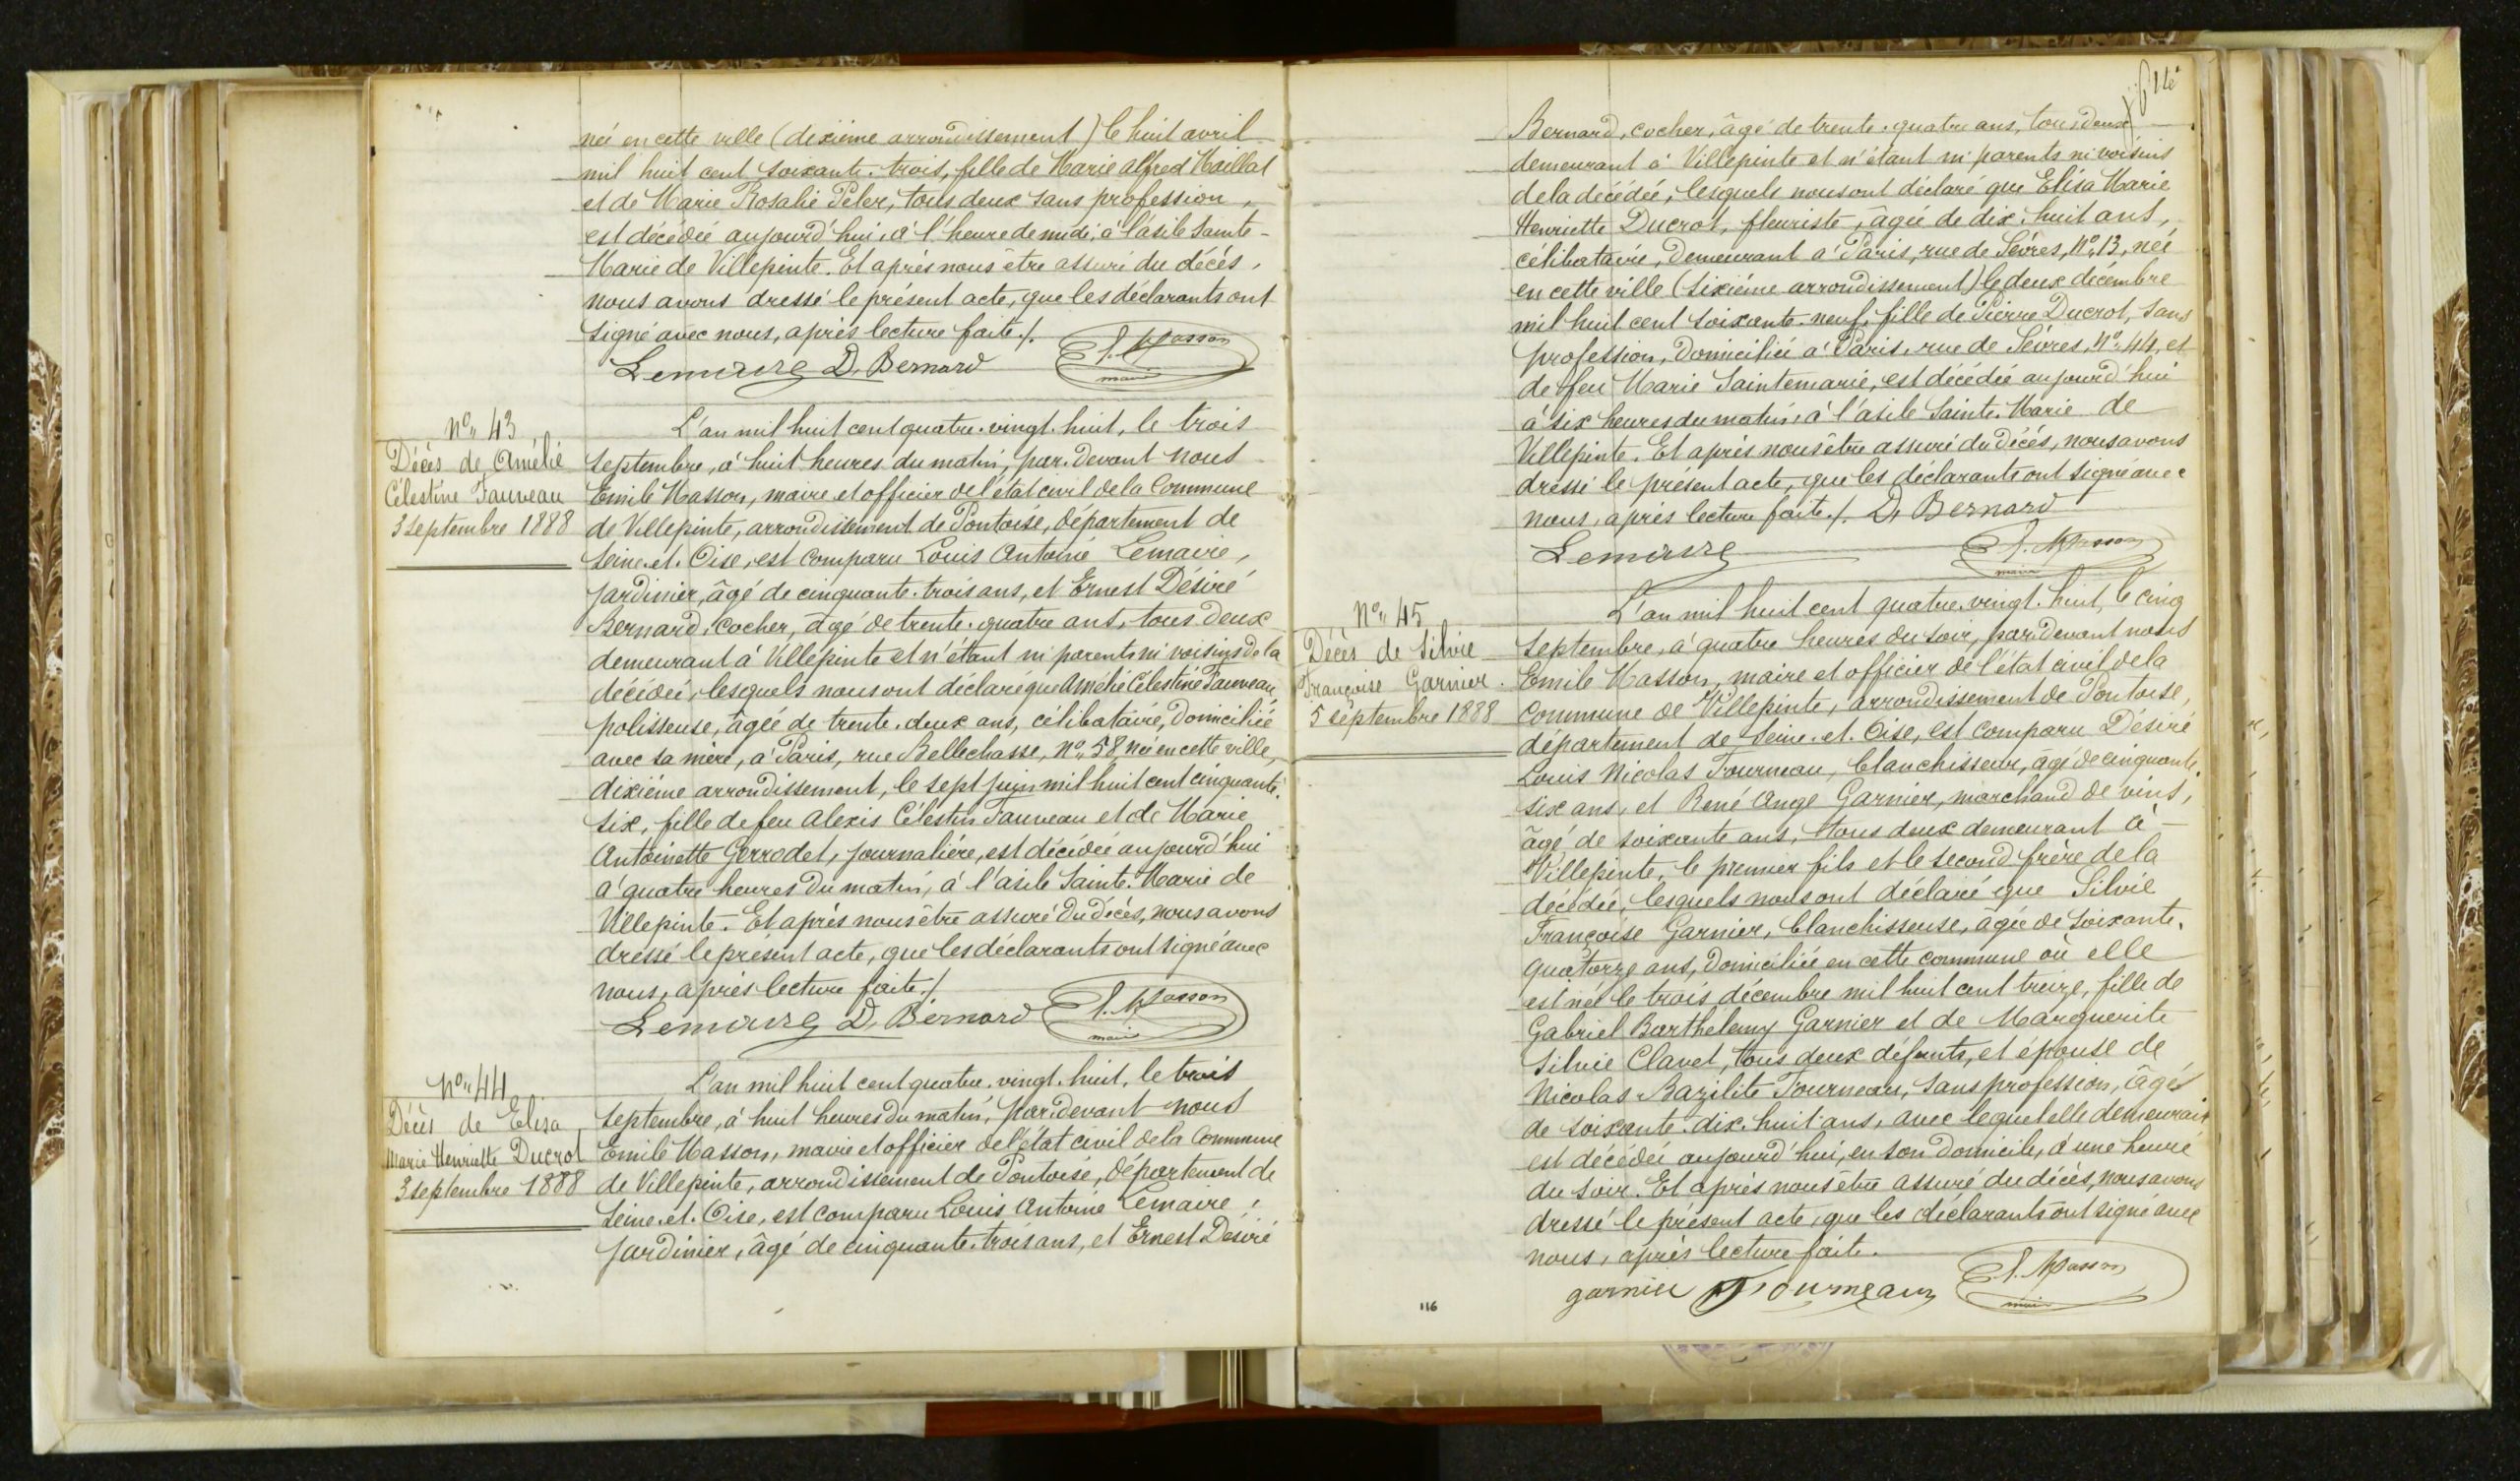 née en cette ville (dixième arrondissement) le huit avril
mil huit cent soixante-trois, fille de Marie Alfred Maillat
et de Marie Rosalie Peler, tous deux sans profession,
est décédée aujourd'hui, à l'heure de midi, à l'asile Sainte-
Marie de Villepinte. Et après nous être assuré du décès,
nous avons dressé le présent acte, que les déclarants ont
signé avec nous, après lecture faite./.
Lemaire D. Bernard E. Masson
maire
N° 43
Décès de Amélie
Célestine Fauveau
3 septembre 1888
L'an mil huit cent quatre-vingt-huit, le trois
septembre, à huit heures du matin, par-devant nous
Emile Masson, maire et officier de l'état civil de la Commune
de Villepinte, arrondissement de Pontoise, département de
Seine-et-Oise, est comparu Louis Antoine Lemaire,
jardinier, âgé de cinquante-trois ans, et Ernest Désiré
Bernard, cocher, âgé de trente-quatre ans, tous deux
demeurant à Villepinte et n'étant ni parents ni voisins de la
décédée, lesquels nous ont déclaré que Amélie Célestine Fauveau,
polisseuse, âgée de trente-deux ans, célibataire, domiciliée
avec sa mère, à Paris, rue Bellechasse, N° 58, née en cette ville,
dixième arrondissement, le sept juin mil huit cent cinquante-
six, fille de feu Alexis Célestin Fauveau et de Marie
Antoinette Gerrodet, journalière, est décédée aujourd'hui
à quatre heures du matin, à l'asile Sainte-Marie de
Villepinte. Et après nous être assuré du décès, nous avons
dressé le présent acte, que les déclarants ont signé avec
nous, après lecture faite./.
Lemaire D. Bernard E. Masson
maire
N° 44
Décès de Elisa
Marie Henriette Ducrot
3 septembre 1888
L'an mil huit cent quatre-vingt-huit, le trois
septembre, à huit heures du matin, par-devant nous
Emile Masson, maire et officier de l'état civil de la Commune
de Villepinte, arrondissement de Pontoise, département de
Seine-et-Oise, est comparu Louis Antoine Lemaire,
jardinier, âgé de cinquante-trois ans, et Ernest Désiré
Bernard, cocher, âgé de trente-quatre ans, tous deux
demeurant à Villepinte et n'étant ni parents ni voisins
de la décédée, lesquels nous ont déclaré que Elisa Marie
Henriette Ducrot, fleuriste, âgée de dix-huit ans,
célibataire, demeurant à Paris, rue de Sèvres, N° 13, née
en cette ville (sixième arrondissement) le deux décembre
mil huit cent soixante-neuf, fille de Pierre Ducrot, sans
profession, domicilié à Paris, rue de Sèvres, N° 44, et
de feu Marie Saintemarie, est décédée aujourd'hui
à six heures du matin, à l'asile Sainte-Marie de
Villepinte. Et après nous être assuré du décès, nous avons
dressé le présent acte, que les déclarants ont signé avec
nous, après lecture faite./. D. Bernard
Lemaire E. Masson
maire
N° 45
Décès de Silvie
Françoise Garnier.
5 septembre 1888
L'an mil huit cent quatre-vingt-huit, le cinq
septembre, à quatre heures du soir, par-devant nous
Emile Masson, maire et officier de l'état civil de la
Commune de Villepinte, arrondissement de Pontoise,
département de Seine-et-Oise, est comparu Désiré
Louis Nicolas Tourneau, blanchisseur, âgé de cinquante-
six ans, et René Ange Garnier, marchand de vins,
âgé de soixante ans, tous deux demeurant à
Villepinte, le premier fils et le second frère de la
décédée, lesquels nous ont déclaré que Silvie
Françoise Garnier, blanchisseuse, âgée de soixante-
quatorze ans, domiciliée en cette commune où elle
est née le trois décembre mil huit cent treize, fille de
Gabriel Barthelemy Garnier et de Marguerite
Silvie Clavel, tous deux défunts, et épouse de
Nicolas Bazilite Tourneau, sans profession, âgé
de soixante-dix-huit ans, avec lequel elle demeurait
est décédée aujourd'hui, en son domicile, à une heure
du soir. Et après nous être assuré du décès, nous avons
dressé le présent acte, que les déclarants ont signé avec
nous, après lecture faite.
garnier Tourneau E. Masson
maire
116